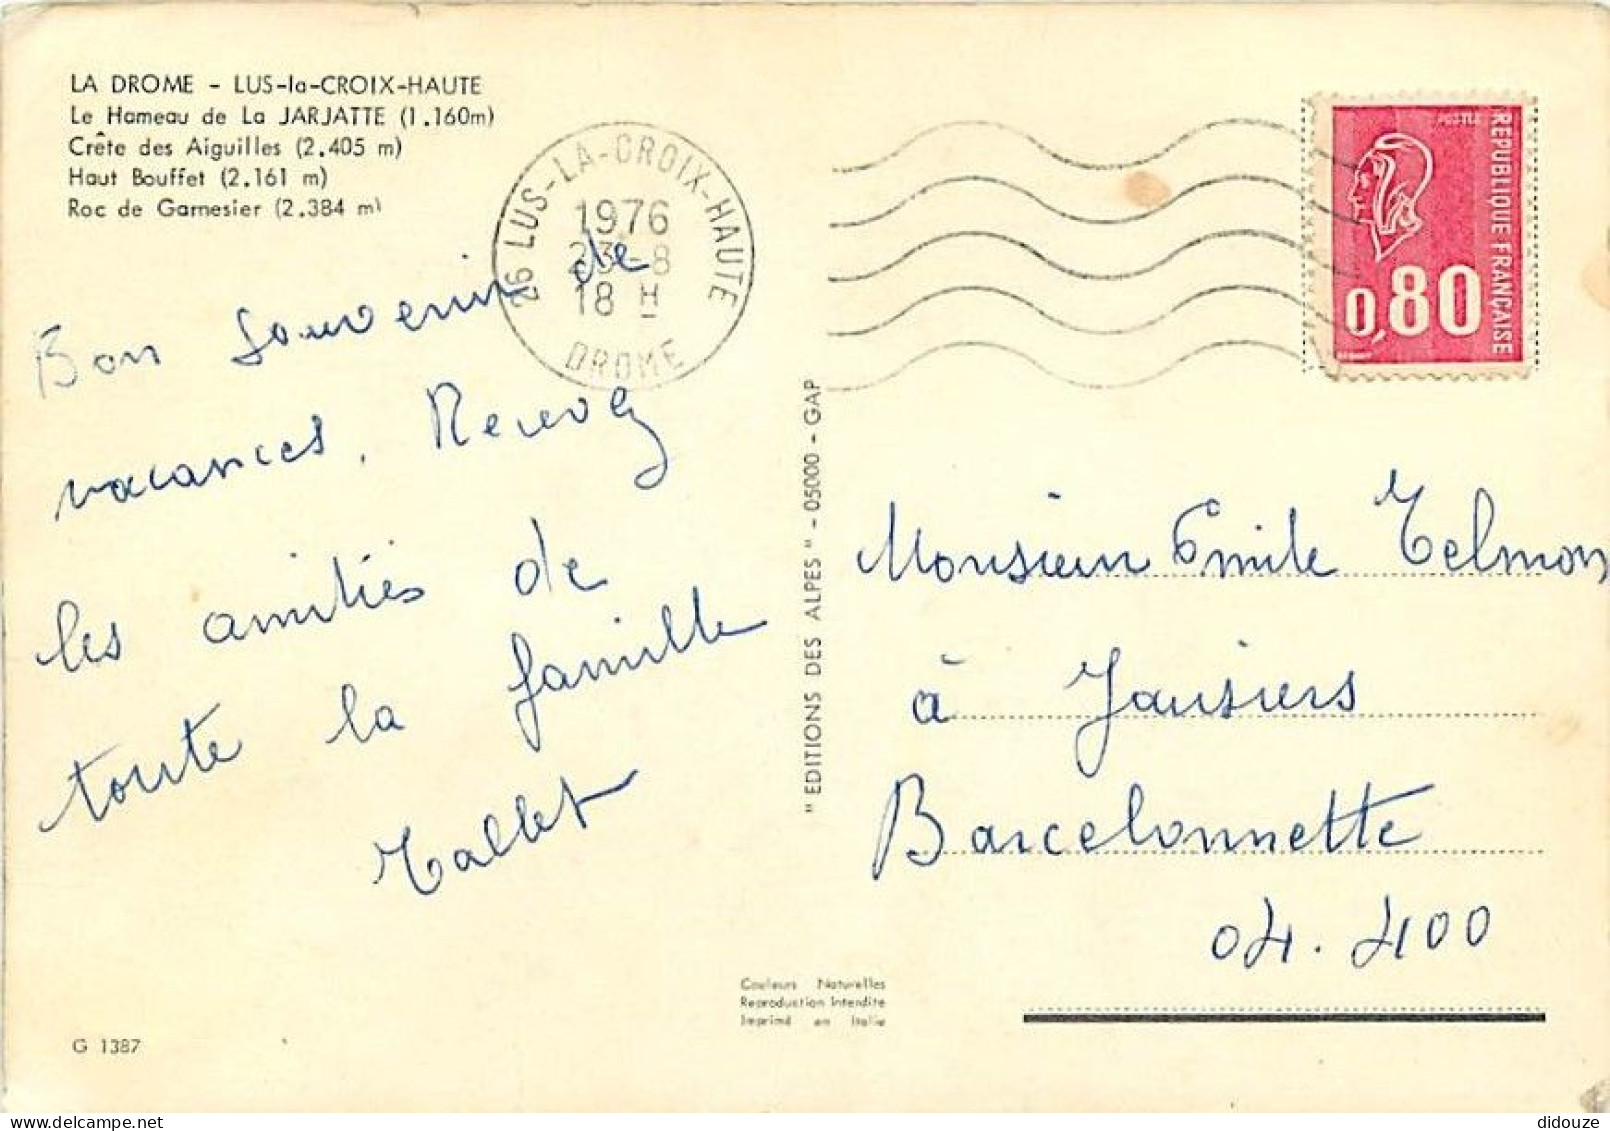 LA DROME - LUS-la-CROIX-HAUTE
Le Hameau de La JARJATTE (1.160m)
Crête des Aiguilles (2.405 m)
Haut Bouffet (2.161 m)
Roc de Garnesier (2.384 m)
26 LUS-LA-CROIX-HAUTE
1976
23-8
18 H
DROME
POSTES
REPUBLIQUE FRANÇAISE
0,80
Bon souvenir de
vacances. Recevez
les amitiés de
toute la famille
Tallet
"EDITIONS DES ALPES" - 05000 - GAP
Monsieur Emile Telmon
à Jausiers
Barcelonnette
04.400
Couleurs Naturelles
Reproduction Interdite
Imprimé en Italie
G 1387
didouze